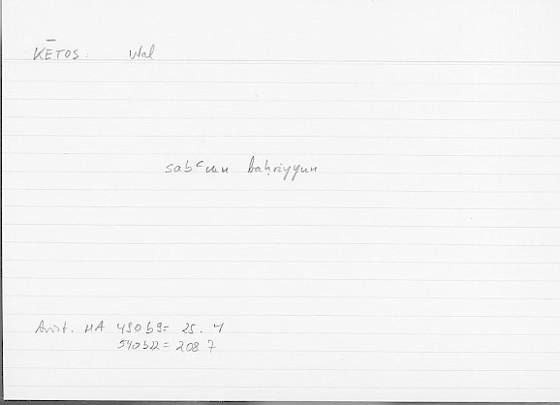 KĒTOS. Wal
sabᶜun baḥriyyun
Arist. HA 490b9= 25. 4
540b22= 208 7